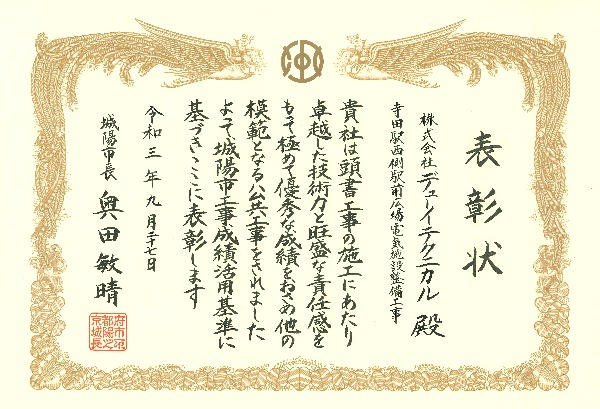 表彰状
株式会社 デューイテクニカル 殿
寺田駅西側駅前広場電気施設整備工事
貴社は頭書工事の施工にあたり
卓越した技術力と旺盛な責任感を
もって極めて優秀な成績をおさめ他の
模範となる公共工事をされました
よって城陽市工事成績活用基準に
基づきここに表彰します
令和三年九月二十七日
城陽市長 奥田敏晴